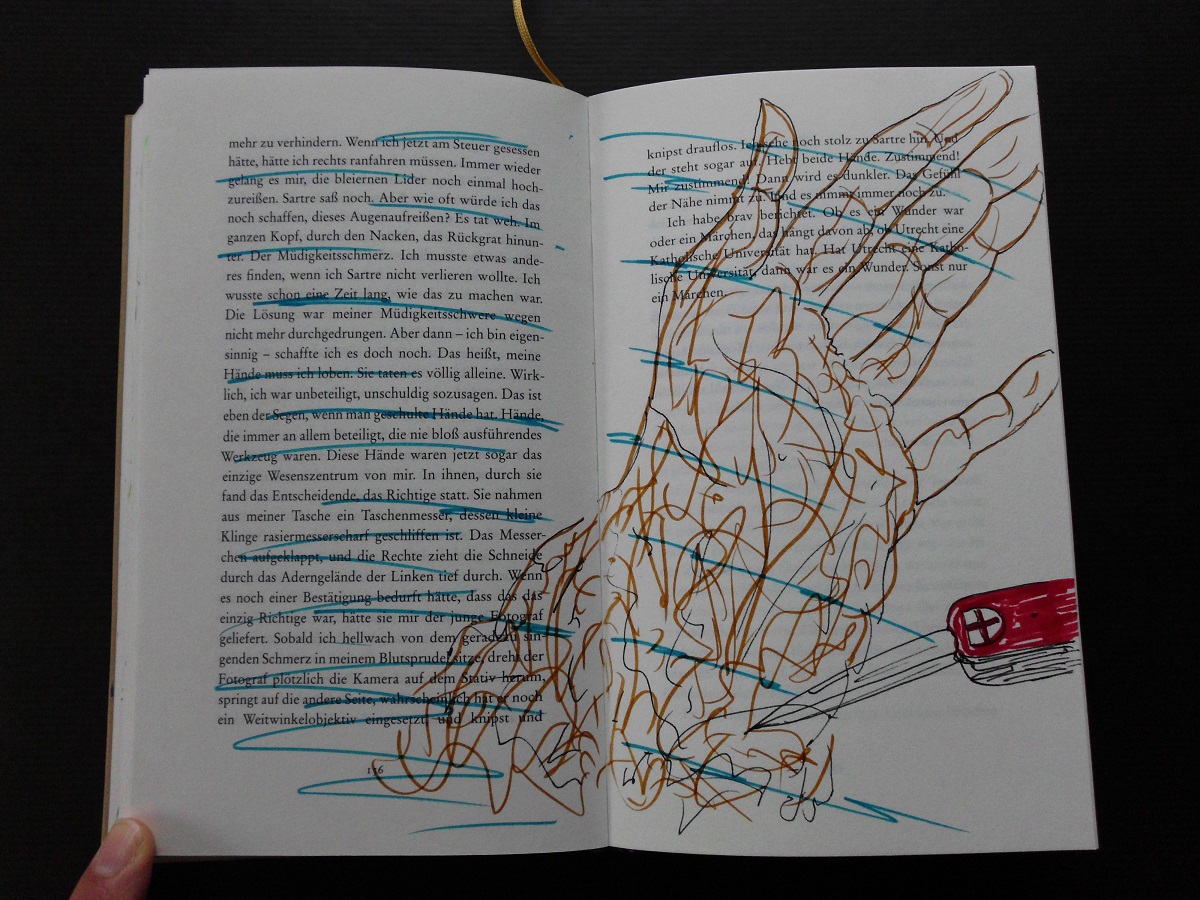 mehr zu verhindern. Wenn ich jetzt am Steuer gesessen
hätte, hätte ich rechts ranfahren müssen. Immer wieder
gelang es mir, die bleiernen Lider noch einmal hoch-
zureißen. Sartre saß noch. Aber wie oft würde ich das
noch schaffen, dieses Augenaufreißen? Es tat weh. Im
ganzen Kopf, durch den Nacken, das Rückgrat hinun-
ter. Der Müdigkeitsschmerz. Ich musste etwas ande-
res finden, wenn ich Sartre nicht verlieren wollte. Ich
wusste schon eine Zeit lang, wie das zu machen war.
Die Lösung war meiner Müdigkeitsschwere wegen
nicht mehr durchgedrungen. Aber dann – ich bin eigen-
sinnig – schaffte ich es doch noch. Das heißt, meine
Hände muss ich loben. Sie taten es völlig alleine. Wirk-
lich, ich war unbeteiligt, unschuldig sozusagen. Das ist
eben der Segen, wenn man geschulte Hände hat. Hände,
die immer an allem beteiligt, die nie bloß ausführendes
Werkzeug waren. Diese Hände waren jetzt sogar das
einzige Wesenszentrum von mir. In ihnen, durch sie
fand das Entscheidende, das Richtige statt. Sie nahmen
aus meiner Tasche ein Taschenmesser, dessen kleine
Klinge rasiermesserscharf geschliffen ist. Das Messer-
chen aufgeklappt, und die Rechte zieht die Schneide
durch das Aderngelände der Linken tief durch. Wenn
es noch einer Bestätigung bedurft hätte, dass das das
einzig Richtige war, hätte sie mir der junge Fotograf
geliefert. Sobald ich hellwach von dem geradezu sin-
genden Schmerz in meinem Blutsprudel sitze, dreht der
Fotograf plötzlich die Kamera auf dem Stativ herum,
springt auf die andere Seite, wahrscheinlich hat er noch
ein Weitwinkelobjektiv eingesetzt, und knipst und
136
knipst drauflos. Ich sehe noch stolz zu Sartre hin. Und
der steht sogar auf. Hebt beide Hände. Zustimmend!
Mir zustimmend! Dann wird es dunkler. Das Gefühl
der Nähe nimmt zu. Und es nimmt immer noch zu.
Ich habe brav berichtet. Ob es ein Wunder war
oder ein Märchen, das hängt davon ab, ob Utrecht eine
Katholische Universität hat. Hat Utrecht eine Katho-
lische Universität, dann war es ein Wunder. Sonst nur
ein Märchen.